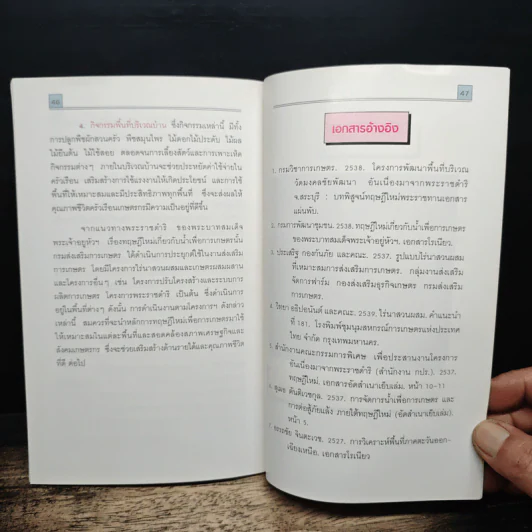 46
๕. กิจกรรมพื้นที่บริเวณบ้าน ซึ่งกิจกรรมเหล่านี้ มีทั้ง
การปลูกพืชผักสวนครัว พืชสมุนไพร ไม้ดอกไม้ประดับ ไม้ผล
ไม้ยืนต้น ไม้ใช้สอย ตลอดจนการเลี้ยงสัตว์และการเพาะเห็ด
กิจกรรมต่างๆ ภายในบริเวณบ้านจะช่วยประหยัดค่าใช้จ่ายใน
ครัวเรือน เสริมสร้างการใช้แรงงานให้เกิดประโยชน์ และการใช้
พื้นที่ให้เหมาะสมและมีประสิทธิภาพทุกพื้นที่ ซึ่งจะส่งผลให้
คุณภาพชีวิตครัวเรือนเกษตรกรมีความเป็นอยู่ที่ดีขึ้น
จากแนวทางพระราชดำริ ของพระบาทสมเด็จ
พระเจ้าอยู่หัวฯ เรื่องทฤษฎีใหม่เกี่ยวกับน้ำเพื่อการเกษตรนั้น
กรมส่งเสริมการเกษตร ได้ดำเนินการประยุกต์ใช้ในงานส่งเสริม
การเกษตร โดยมีโครงการไร่นาสวนผสมและเกษตรผสมผสาน
และโครงการอื่นๆ เช่น โครงการปรับโครงสร้างและระบบการ
ผลิตการเกษตร โครงการพระราชดำริ เป็นต้น ซึ่งดำเนินการ
อยู่ในพื้นที่ต่างๆ ดังนั้น การดำเนินงานตามโครงการฯ ดังกล่าว
เหล่านี้ สมควรที่จะนำหลักการทฤษฎีใหม่เพื่อการเกษตรมาใช้
ให้เหมาะสมในแต่ละพื้นที่และสอดคล้องสภาพเศรษฐกิจและ
สังคมเกษตรกร ซึ่งจะช่วยเสริมสร้างด้านรายได้และคุณภาพชีวิต
ที่ดี ต่อไป
47
เอกสารอ้างอิง
1. กรมวิชาการเกษตร. 2538. โครงการพัฒนาพื้นที่บริเวณ
วัดมงคลชัยพัฒนา อันเนื่องมาจากพระราชดำริ
จ.สระบุรี : บทพิสูจน์ทฤษฎีใหม่พระราชทานเอกสาร
แผ่นพับ.
2. กรมการพัฒนาชุมชน. 2538. ทฤษฎีใหม่เกี่ยวกับน้ำเพื่อการเกษตร
ของพระบาทสมเด็จพระเจ้าอยู่หัวฯ. เอกสารโรเนียว.
3. ประเสริฐ กองกันภัย และคณะ. 2537. รูปแบบไร่นาสวนผสม
ที่เหมาะสมการส่งเสริมการเกษตร. กลุ่มงานส่งเสริม
จัดการฟาร์ม กองส่งเสริมธุรกิจเกษตร กรมส่งเสริม
การเกษตร.
4. วิทยา อธิปอนันต์ และคณะ. 2539. ไร่นาสวนผสม. คำแนะนำ
ที่ 181. โรงพิมพ์ชุมนุมสหกรณ์การเกษตรแห่งประเทศ
ไทย จำกัด กรุงเทพมหานคร.
5. สำนักงานคณะกรรมการพิเศษ เพื่อประสานงานโครงการ
อันเนื่องมาจากพระราชดำริ (สำนักงาน กปร.). 2537.
ทฤษฎีใหม่. เอกสารอัดสำเนาเย็บเล่ม. หน้า 10-11
ตันติเวชกุล. 2537. การจัดการน้ำเพื่อการเกษตร และ
การต่อสู้ภัยแล้ง ภายใต้ทฤษฎีใหม่ (อัดสำเนาเย็บเล่ม).
หน้า 5.
จันตะเวช. 2527. การวิเคราะห์พื้นที่ภาคตะวันออก-
เฉียงเหนือ. เอกสารโรเนียว